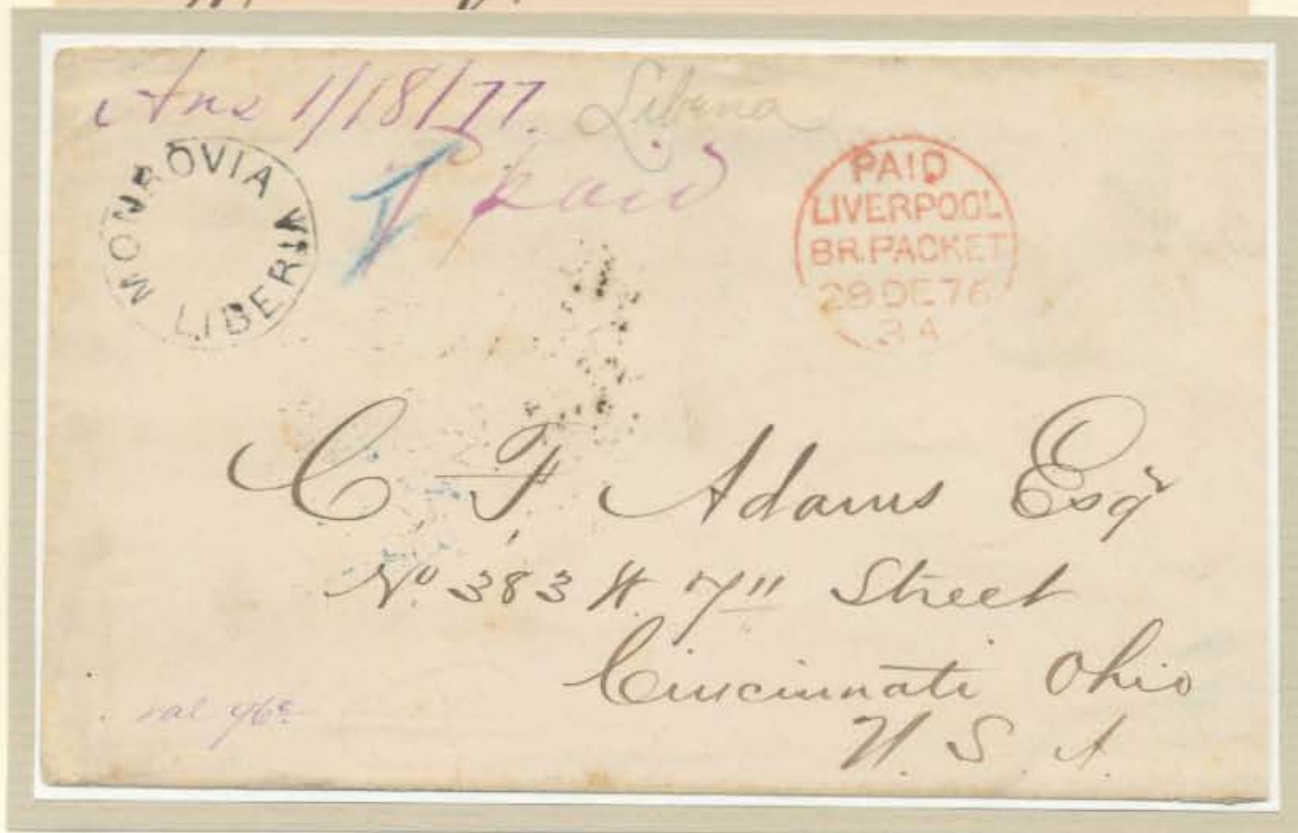 Ans 1/18/77.
Liberia
paid
MONROVIA
LIBERIA
PAID
LIVERPOOL
BR. PACKET
28 DE 76
3A
C F Adams Esqr
No 383 W. 7" Street
Cincinnati Ohio
U. S. A.
val 46c